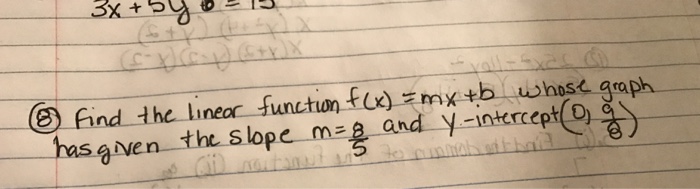 3x + 5y = 15
⑧ Find the linear function f(x) = mx+b whose graph
has given the slope m = 8/5 and y-intercept (0, 9/8)